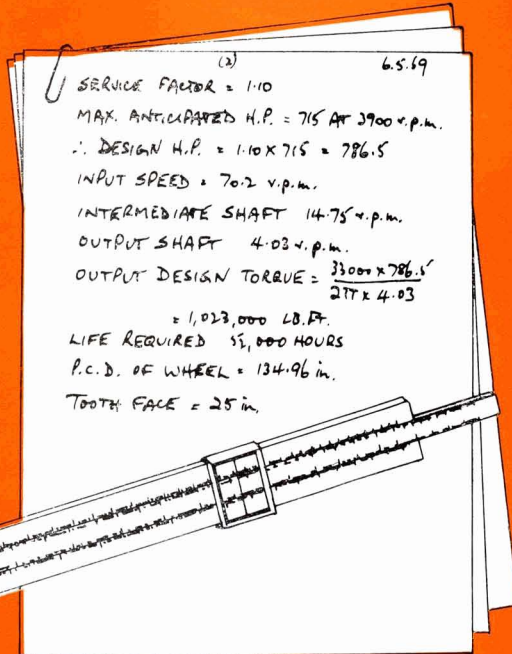 (2) 6.5.69
SERVICE FACTOR = 1.10
MAX. ANTICIPATED H.P. = 715 AT 3900 r.p.m.
∴ DESIGN H.P. = 1.10 X 715 = 786.5
INPUT SPEED = 70.2 r.p.m.
INTERMEDIATE SHAFT 14.75 r.p.m.
OUTPUT SHAFT 4.03 r.p.m.
OUTPUT DESIGN TORQUE = 33000 x 786.5 / 2π x 4.03
= 1,023,000 LB.FT.
LIFE REQUIRED HOURS
P.C.D. OF WHEEL = 134.96 in.
TOOTH FACE = 25 in.